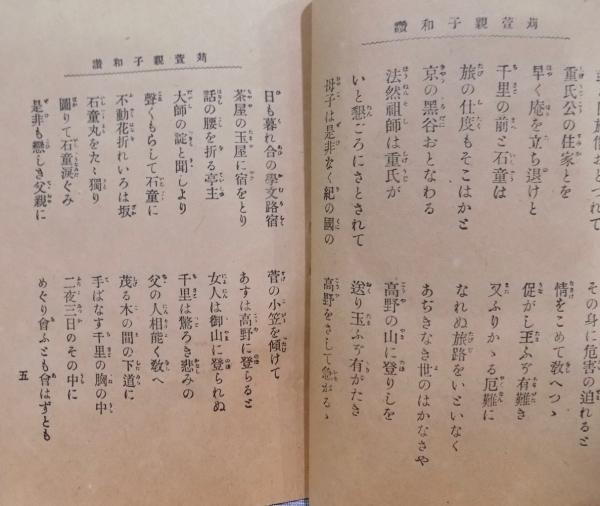 苅萱親子和讚
旅僧おとづれて
その身に危害の迫れると
重氏公の住家とを
情をこめて敎へつゝ
早く庵を立ち退けと
促がし玉ふぞ有難き
千里の前と石童は
又ふりかゝる厄難に
旅の仕度もそこはかと
なれぬ旅路をいといなく
京の黑谷おとなわる
あぢきなき世のはかなさや
法然祖師は重氏が
高野の山に登りしを
いと懇ころにさとされて
送り玉ふぞ有がたき
母子は是非なく紀の國の
高野をさして急がるゝ
苅萱親子和讚
日も暮れ合の學文路宿
菅の小笠を傾けて
茶屋の玉屋に宿をとり
あすは高野に登らると
話の腰を折る亭主
女人は御山に登られぬ
大師の諚と聞しより
千里は驚ろき悲みの
聲くもらして石童に
父の人相能く敎へ
不動花折れいろは坂
茂る木の間の下道に
石童丸をたゞ獨り
手ばなす千里の胸の中
圖りて石童涙ぐみ
二夜三日のその中に
是非も戀しき父親に
めぐり會ふとも會はずとも
五